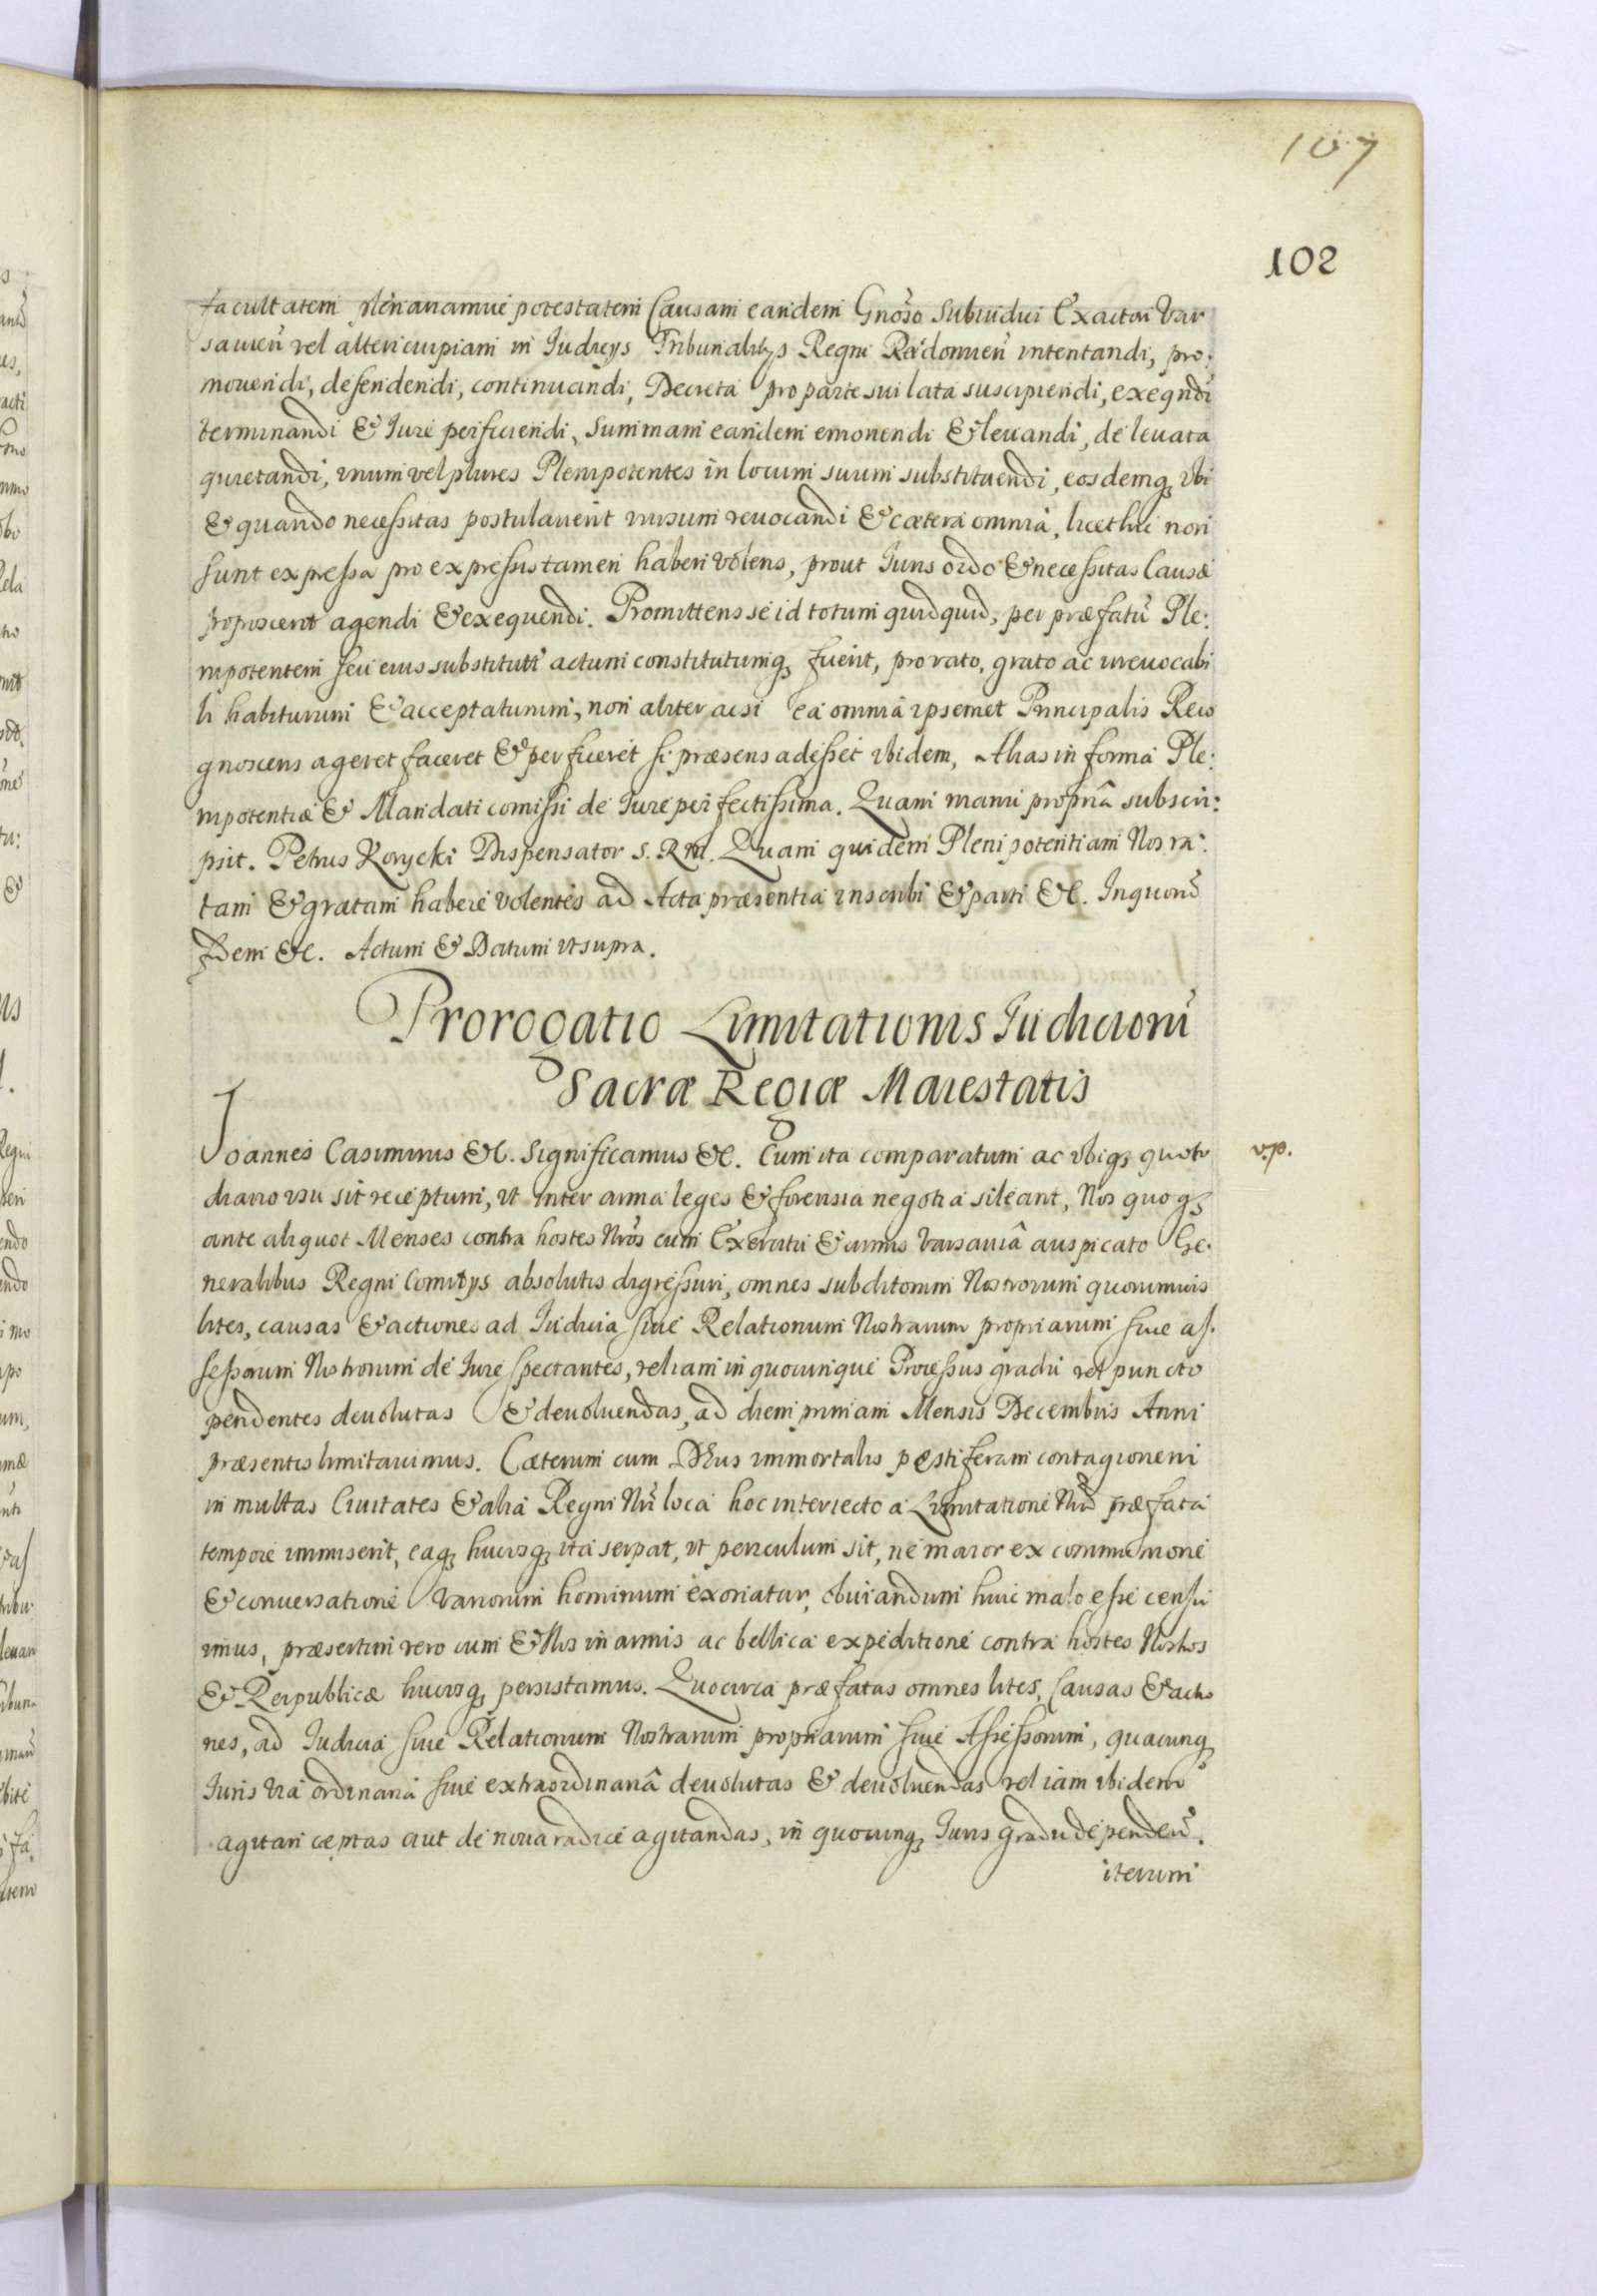 107
102
facultatem plenariamue potestatem Causam eandem Gnõso Subiudici Exactori Var
sauień vel alteri cuipiam in Iudicijs Tribunalitijs Regni Radomień intentandi, pro:
mouendi, defendendi, continuandi, Decreta pro parte sui lata suscipiendi, exeqndi
terminandi & Iure perficiendi, Summam eandem emonendi & leuandi, de leuata
quietandi, vnum vel plures Plenipotentes in locum suum substituendi, eosdemq; vbi
& quando necessitas postulauerit rursum reuocandi & cætera omnia, licet hic non
sunt expressa pro expressis tamen haberi volens, prout Iuris ordo & necessitas Causæ
poposcerit agendi & exequendi. Promittens se id totum quidquid, per præfatũ Ple:
nipotentem seu eius substitutũ actum constitutumq; fuerit, pro rato, grato ac irreuocabi
li habiturum & acceptaturum, non aliter ac si ea omnia ipsemet Principalis Reco
gnoscens ageret faceret & perficeret si præsens adesset ibidem, Alias in forma Ple:
nipotentiæ & Mandati comissi de Iure perfectissima. Quam manu propriâ subscri:
psit. Petrus Korycki Dispensator S. R M. Quam quidem Plenipotentiam Nos ra:
tam & gratam habere volentes ad Acta præsentia inscribi & parti &c. In quorũ
fidem &c. Actum & Datum vt supra.
Prorogatio Limitationis Iudiciorũ
Sacræ Regiæ Maiestatis
Ioannes Casimirus &c. Significamus &c. Cum ita comparatum ac vbiq; quoti
diano vsu sit receptum, vt inter arma leges & forensia negotia sileant, Nos quoq;
ante aliquot Menses contra hostes Nrõs cum Exercitu & armis Varsauiâ auspicato Ge:
neralibus Regni Comitijs absolutis digressuri, omnes subditorum Nostrorum quorumuis
lites, causas & actiones ad Iudicia siue Relationum Nostrarum propriarum siue as:
sessorum Nostrorum de Iure spectantes, vel iam in quocunque Processus gradu vel puncto
pendentes deuolutas & deuoluendas, ad diem primam Mensis Decembris Anni
præsentis limitauimus. Cæterum cum Deus immortalis pestiferam contagionem
in multas Ciuitates & alia Regni Nri loca hoc interiecto a Limitatione Nrã præfata
tempore immiserit, eaq; hucusq; ita serpat, vt periculum sit, ne maior ex communione
& conuersatione variorum hominum exoriatur, obuiandum huic malo esse censu
imus, præsertim vero cum & Nos in armis ac bellica expeditione contra hostes Nostros
& Reipublicæ hucusq; persistamus. Quocirca præfatas omnes lites, Causas & actio
nes, ad Iudicia siue Relationum Nostrarum propriarum siue Assessorum, quacunq;
Iuris via ordinaria siue extraordinariâ deuolutas & deuoluendas vel iam ibidem
agitari cæptas aut de noua radice agitandas, in quocunq; Iuris gradu dependeñ.
iterum